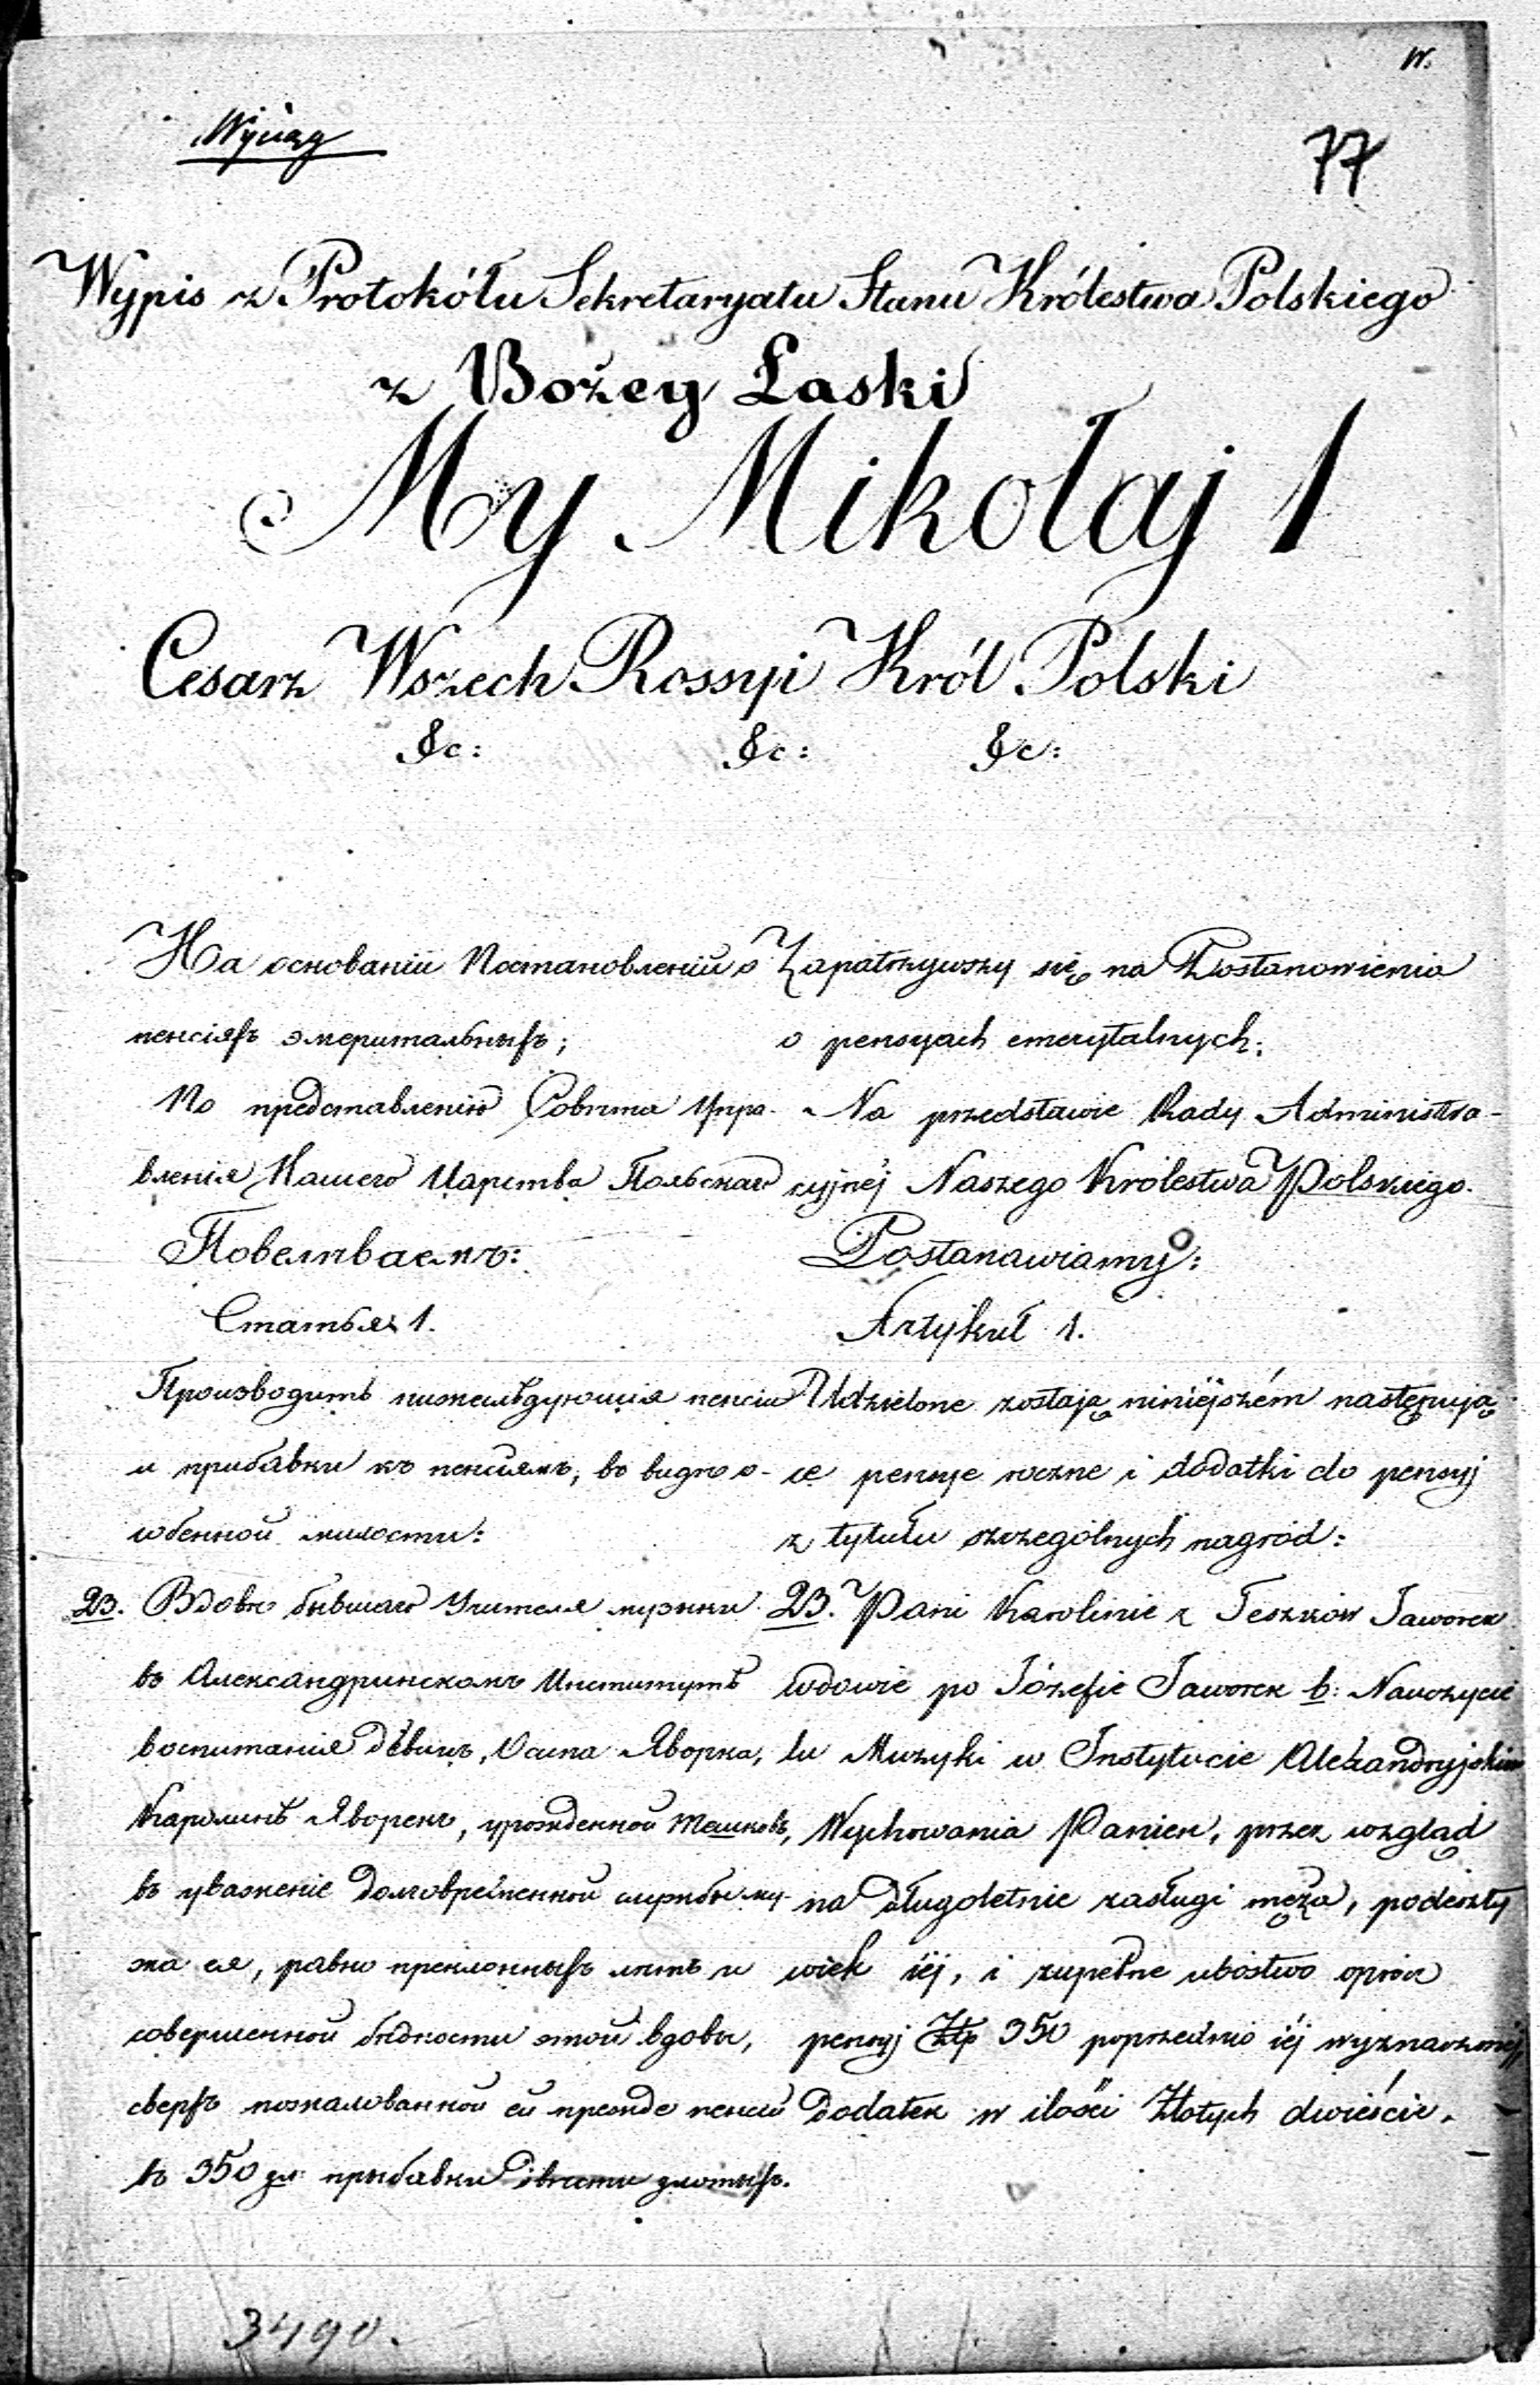 W.
Wyciąg
77
Wypis z Protokółu Sekretaryatu Stanu Królestwa Polskiego
z Bożey Łaski
My Mikołaj 1
Cesarz Wszech Rossyi Król Polski
&c: &c: &c:
На основаніи Постановленій о
пенсіяхъ эмеритальныхъ;
По представленію Совѣта Упра-
вленія Нашего Царства Польскаго
Повелѣваемъ:
Статья 1.
Производить нижеслѣдующія пенсіи
и прибавки къ пенсіямъ, въ видѣ о-
собенной милости:
23. Вдовѣ бывшаго Учителя музыки
въ Александринскомъ Институтѣ
воспитанія дѣвицъ, Осипа Яворка,
Каролинѣ Яворекъ, урожденной Тешковъ,
въ уваженіе долговременной службы му-
жа ея, равно преклонныхъ лѣтъ и
совершенной бѣдности этой вдовы,
сверхъ пожалованной ей прежде пенсіи
въ 350 зл: прибавки двѣсти злотыхъ.
Zapatrzywszy się na Postanowienia
o pensyach emerytalnych;
Na przedstawie Rady Administra-
cyjnéj Naszego Królestwa Polskiego.
Postanawiamy:
Artykuł 1.
Udzielone zostają niniéjszém następują
ce pensye roczne i dodatki do pensyj
z tytułu szczególnych nagród:
23. Pani Karolinie z Teszków Jaworek
wdowie po Józefie Jaworek b: Nauczycie
lu Muzyki w Instytucie Alexandryjskim
Wychowania Panien, przez wzgląd
na długoletnie zasługi męża, podeszły
wiek iéj, i zupełne ubóstwo oprócz
pensyj Złp 350 poprzednio iéj wyznaczonéj,
dodatek w ilości Złotych dwieście.
3490.